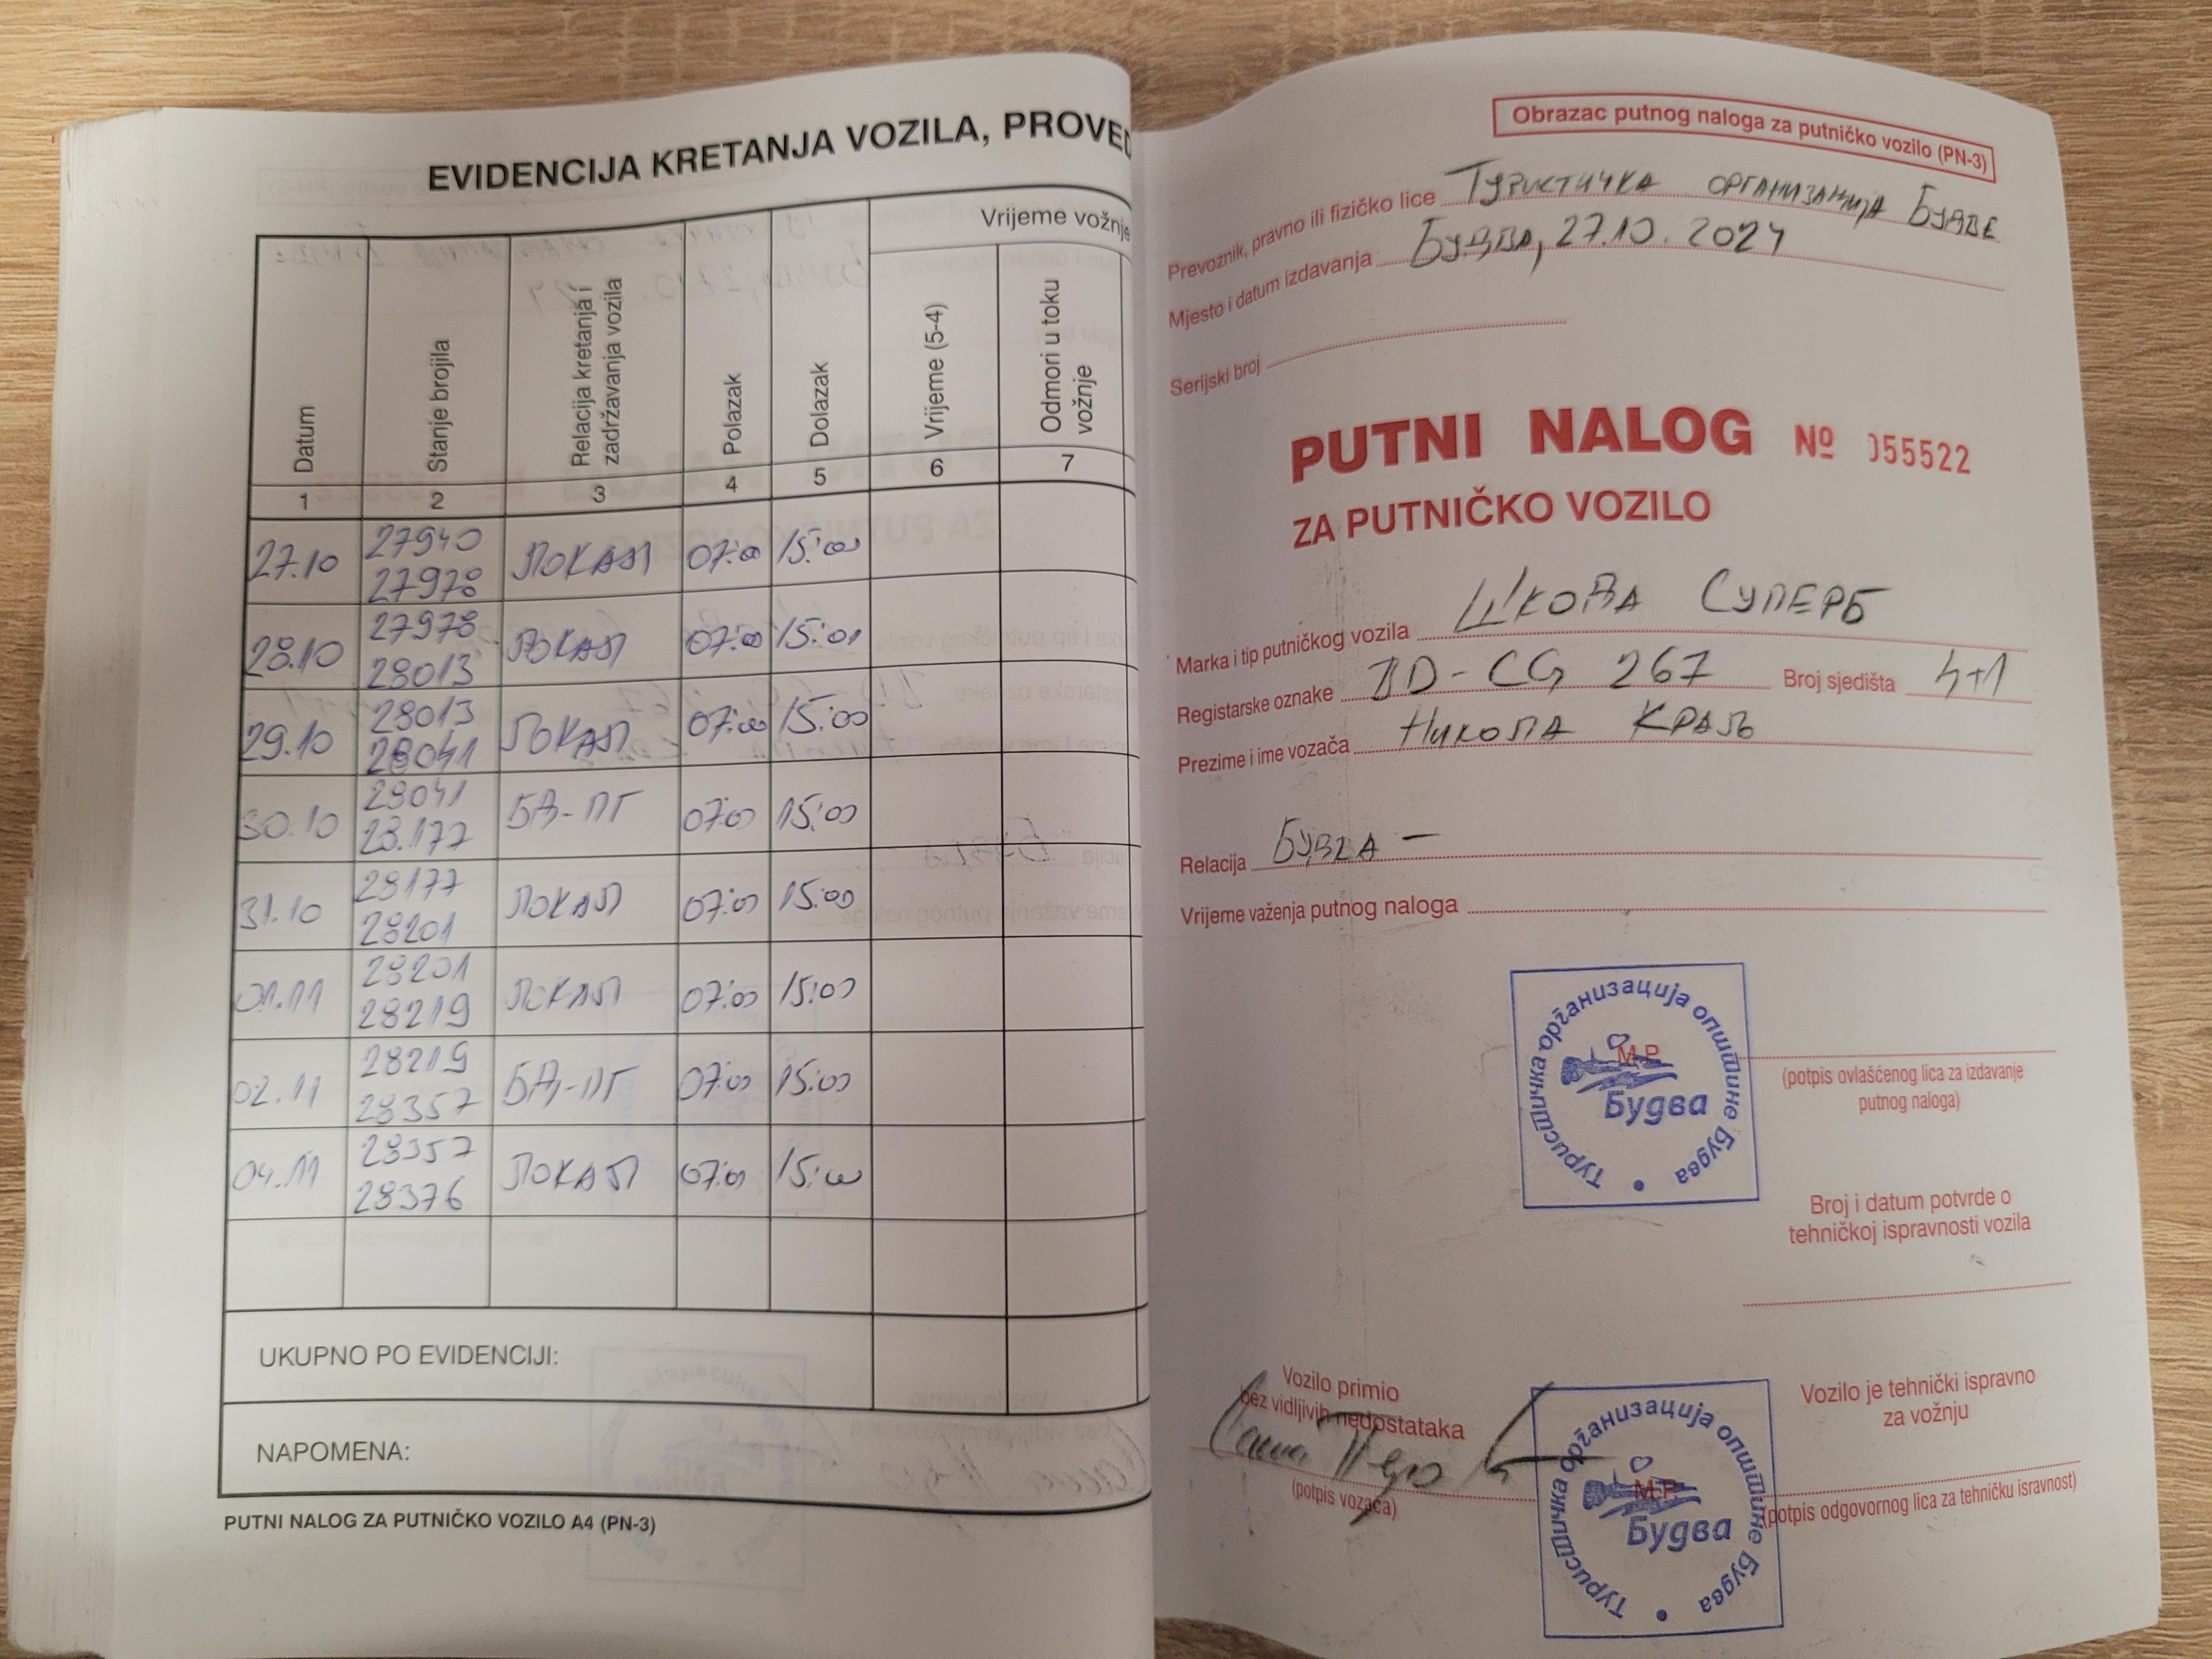 EVIDENCIJA KRETANJA VOZILA, PROVED
Vrijeme vožnje
Datum
Stanje brojila
Relacija kretanja i zadržavanja vozila
Polazak
Dolazak
Vrijeme (5-4)
Odmori u toku vožnje
1 2 3 4 5 6 7
27.10 27940 27978 ЛОКАЛ 07:00 15:00
28.10 27978 28013 ЛОКАЛ 07:00 15:00
29.10 28013 28041 ЛОКАЛ 07:00 15:00
30.10 28041 28.177 БД-ПГ 07:00 15:00
31.10 28177 28201 ЛОКАЛ 07:00 15:00
01.11 28201 28219 ЛОКАЛ 07:00 15:00
02.11 28219 28357 БД-ПГ 07:00 15:00
04.11 28357 28376 ЛОКАЛ 07:00 15:00
UKUPNO PO EVIDENCIJI:
NAPOMENA:
PUTNI NALOG ZA PUTNIČKO VOZILO A4 (PN-3)
Obrazac putnog naloga za putničko vozilo (PN-3)
Prevoznik, pravno ili fizičko lice Туристичка организација Будве
Mjesto i datum izdavanja Будва, 27.10.2024
Serijski broj
PUTNI NALOG № 055522
ZA PUTNIČKO VOZILO
Marka i tip putničkog vozila Шкода Суперб
Registarske oznake BD-CG 267 Broj sjedišta 4+1
Prezime i ime vozača Никола Краљ
Relacija Будва –
Vrijeme važenja putnog naloga
Туристичка организација општине Будва
М.Р.
Будва
(potpis ovlašćenog lica za izdavanje
putnog naloga)
Broj i datum potvrde o
tehničkoj ispravnosti vozila
Vozilo primio
bez vidljivih nedostataka
(potpis vozača)
Туристичка организација општине Будва
М.Р.
Будва
Vozilo je tehnički ispravno
za vožnju
(potpis odgovornog lica za tehničku isravnost)